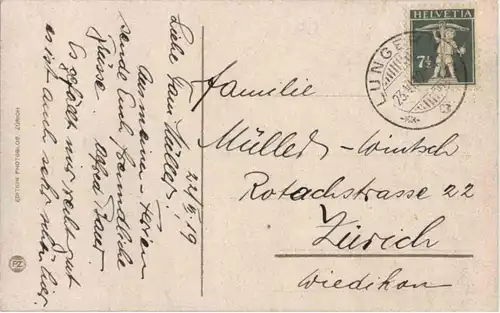 Liebe Frau Müller!
22/V 19
Aus meinen Ferien
sende Euch freundliche
Grüsse. Alfred Bauer
Es gefällt mir recht gut
es ist auch sehr schön hier.
EDITION PHOTOGLOB, ZÜRICH
PZ
HELVETIA
7½
LUNGE
23.V
Familie
Müller-Wintsch
Rotachstrasse 22
Zürich
Wiedikon